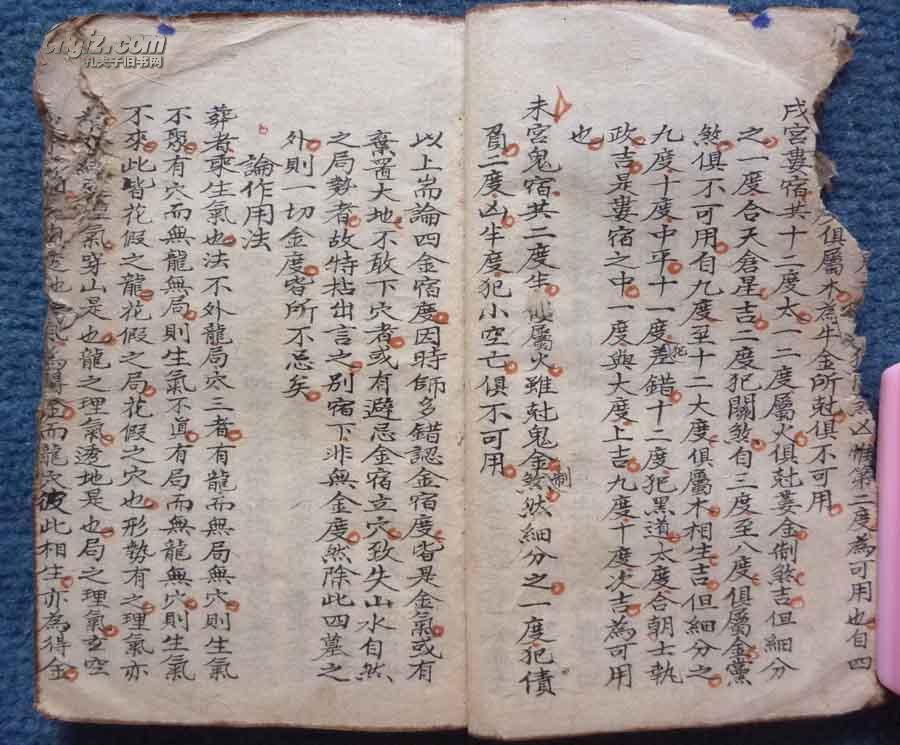 凶惟第二度為可用也自四
俱屬木為牛金所尅俱不可用
戌宮婁宿共十二度太一二度屬火俱尅婁金制煞吉但細分
之一度合天倉星吉二度犯關煞自三度至八度俱屬金黨
煞俱不可用自九度至十二大度俱屬木相生吉但細分之
九度十度中平十一度犯差錯十二度犯黑道太度合朝士執
政吉是婁宿之中一度與大度上吉九度十度次吉為可用
也
未宮鬼宿共二度半俱屬火雖尅鬼金制煞然細分之一度犯債
負二度凶半度犯小空亡俱不可用
以上耑論四金宿度因時師多錯認金宿度皆是金氣或有
棄置大地不敢下穴者或有避忌金宿立穴致失山水自然
之局勢者故特拈出言之別宿下非無金度然除此四墓之
外則一切金度皆所不忌矣
論作用法
葬者乘生氣也法不外龍局穴三者有龍而無局無穴則生氣
不聚有穴而無龍無局則生氣不真有局而無龍無穴則生氣
不來此皆花假之龍花假之局花假之穴也形勢有之理氣亦
氣穿山是也龍之理氣透地是也局之理氣玄空
為得金而龍穴彼此相生亦為得金
cngiz.com
孔夫子旧书网